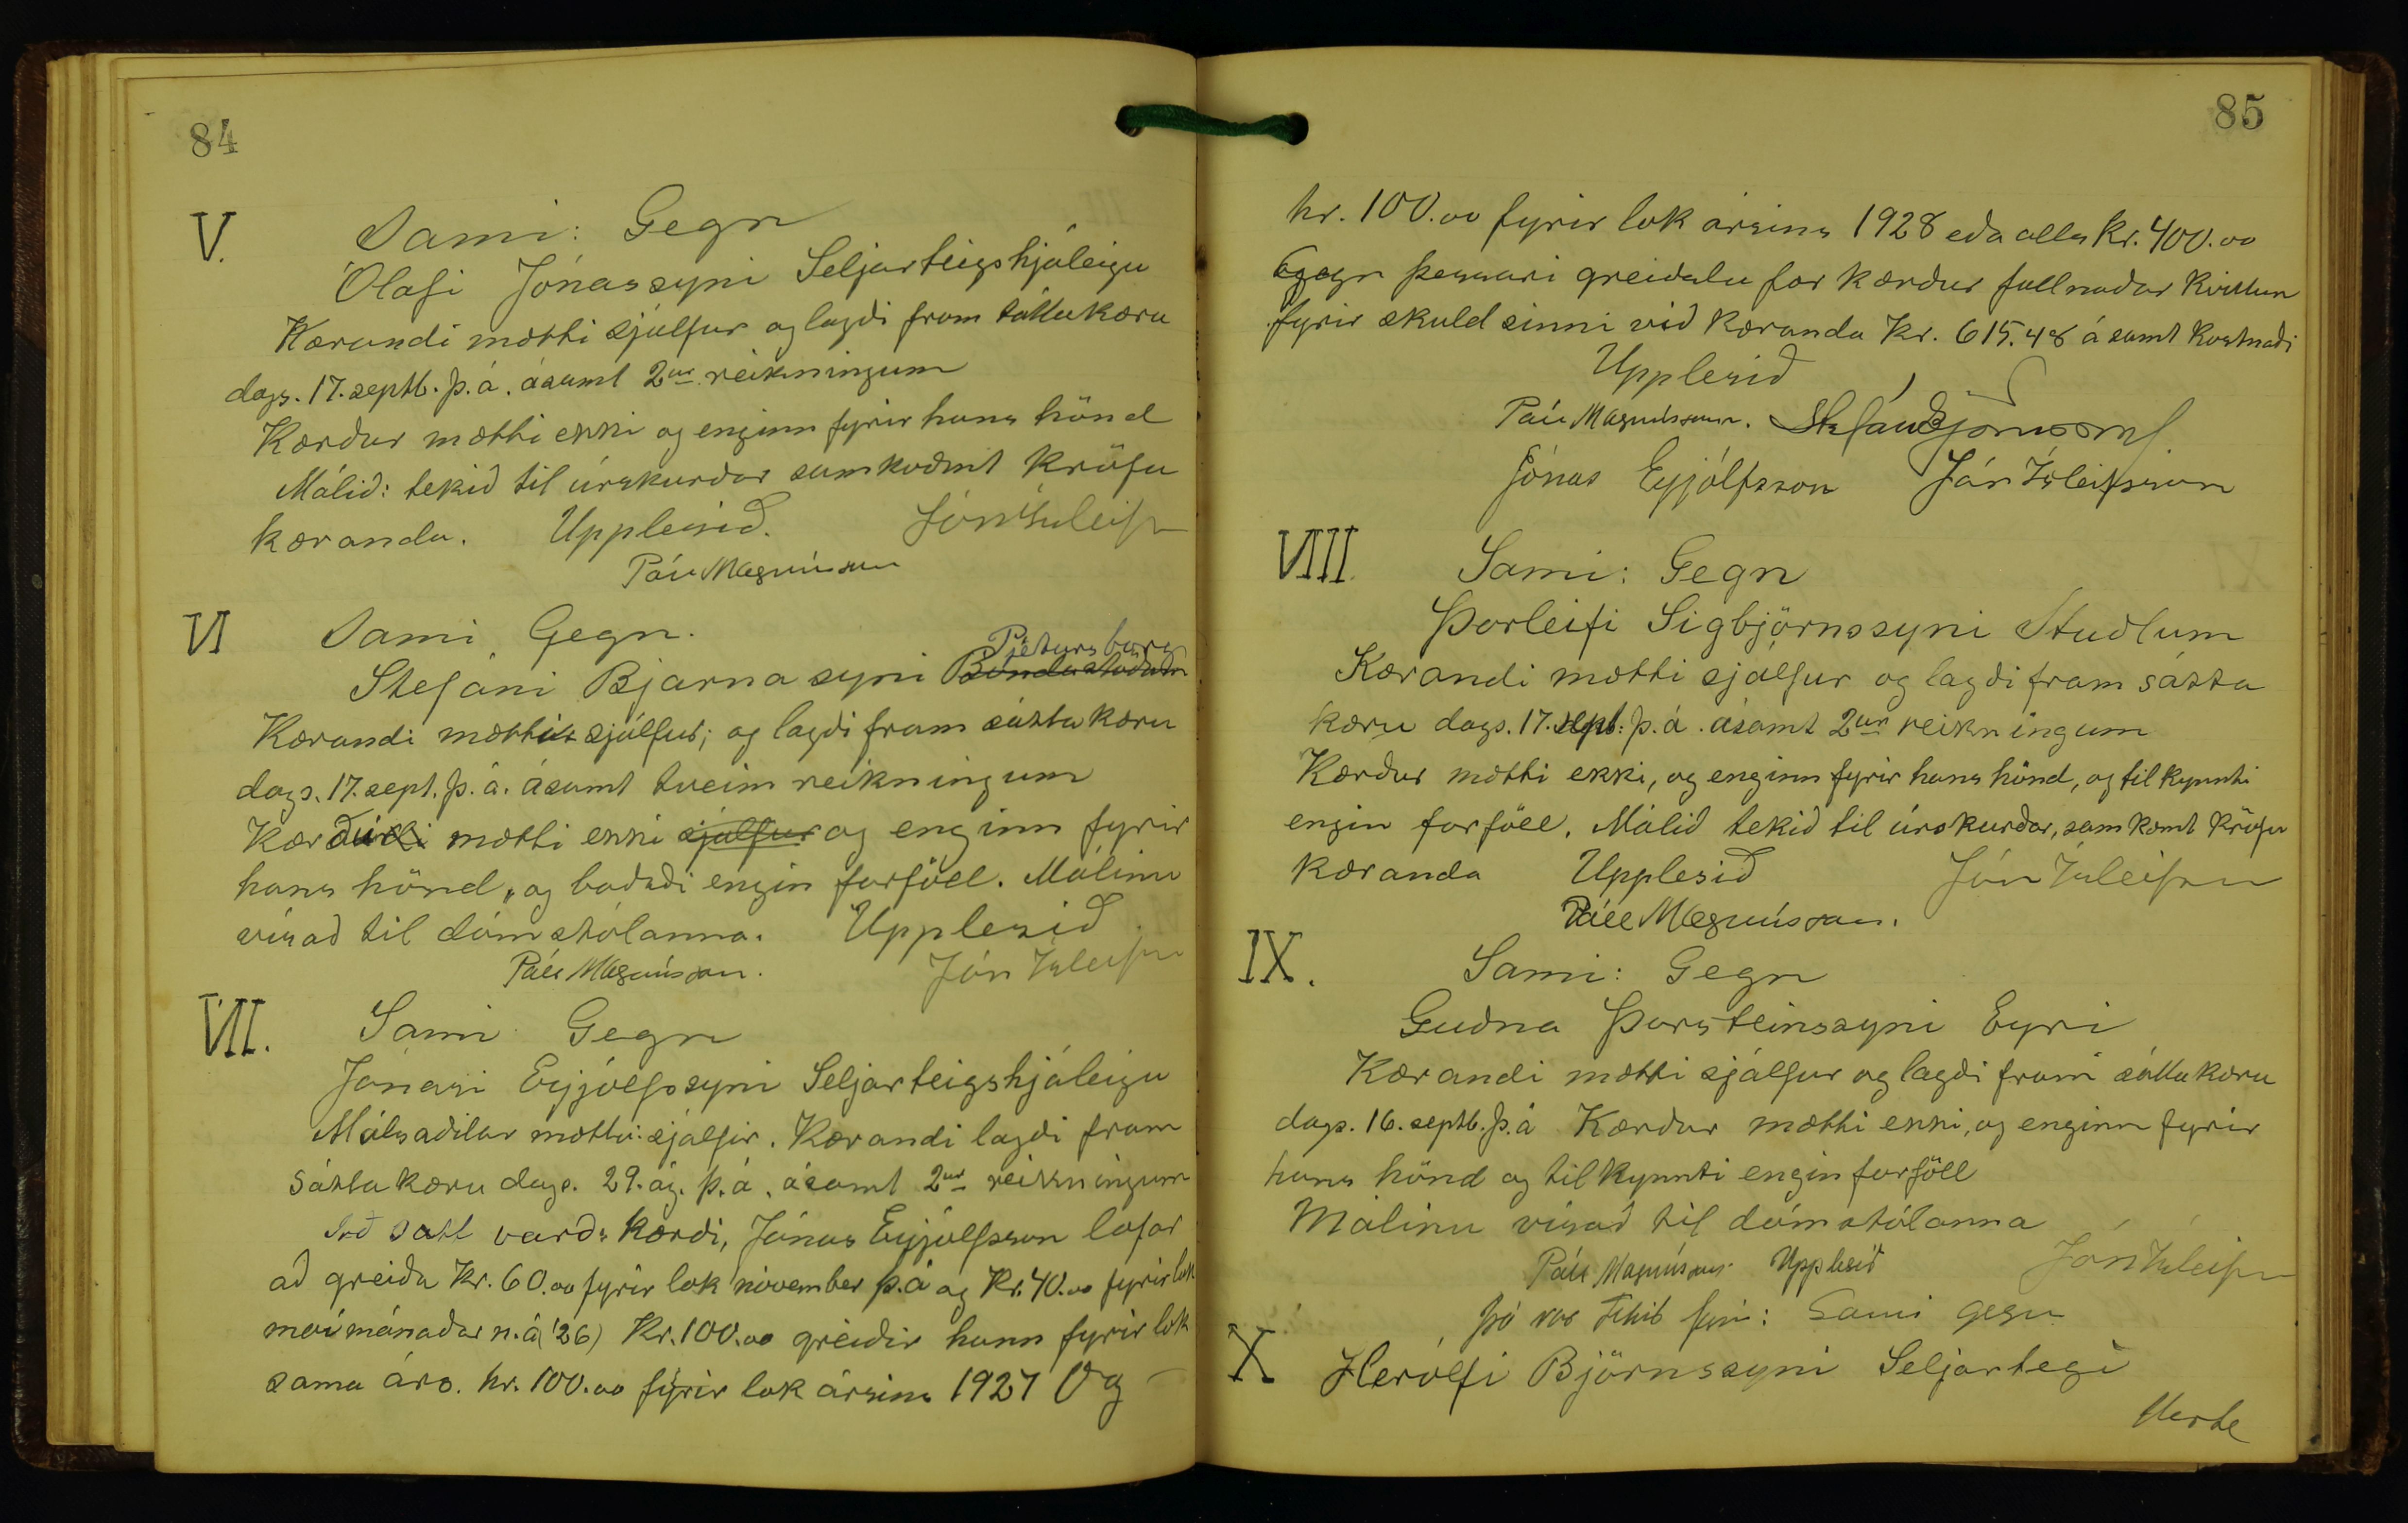 84
V.
Sami: Gegn
Ólafi Jónassyni Seljarteigshjáleigu
Kærandi mætti sjálfur og lagði fram sáttakæru
dags. 17. septb. þ.á. ásamt 2ur reikningum
Kærður mætti ekki og enginn fyrir hans hönd
Málið: tekið til úrskurðar samkvæmt kröfu
kæranda. Upplesið. Jón Ísleifss
Páll Magnússon
VI
Sami Gegn.
Pjetursborg
Stefáni Bjarnasyni Bóndastöðum
Kærandi mætti sjálfur; og lagði fram sáttakæru
dags. 17. sept. þ.á. ásamt tveim reikningum
Kærður mætti ekki sjálfur og enginn fyrir
hans hönd, og boðaði engin forföll. Málinu
vísað til dómstólanna. Upplesið
Páll Magnússon. Jón Ísleifss
VII.
Sami Gegn
Jónasi Eyjólfssyni Seljarteigshjáleigu
Málsaðilar mættu: sjálfir. Kærandi lagði fram
sáttakæru dags. 29. ág. þ.á. ásamt 2ur reikningum
Að sátt varð: kærði, Jónas Eyjólfsson lofar
að greiða Kr. 60.00 fyrir lok nóvember þ.á og Kr. 40.00 fyrir lok
maímánaðar n.á ('26) Kr. 100.00 greiðir hann fyrir lok
sama árs. kr. 100.00 fyrir lok ársins 1927 Og
85
kr. 100.00 fyrir lok ársins 1928 eða alls kr. 400.00
Gegn þessari greiðslu fær kærður fullnaðar kvittun
fyrir skuld sinni við kæranda Kr. 615.48 ásamt kostnaði
Upplesið
Páll Magnússon. Stefán Bjarnason
Jónas Eyjólfsson Jón Ísleifsson
VIII.
Sami: Gegn
Þorleifi Sigbjörnssyni Stuðlum
Kærandi mætti sjálfur og lagði fram sátta
kæru dags. 17. sept: þ.á. ásamt 2ur reikningum
Kærður mætti ekki, og enginn fyrir hans hönd, og tilkynnti
engin forföll. Málið tekið til úrskurðar, samkvæmt kröfu
kæranda Upplesið Jón Ísleifsson
Páll Magnússon.
IX.
Sami: Gegn
Guðna Þorsteinssyni Eyri
Kærandi mætti sjálfur og lagði fram sáttakæru
dags. 16. septb. þ.á Kærður mætti ekki, og enginn fyrir
hans hönd og tilkynnti engin forföll
Málinu vísað til dómstólanna
Páll Magnússon Upplesið Jón Ísleifss
Þá var tekið fyrir: Sami gegn
X
Herólfi Björnssyni Seljartegi